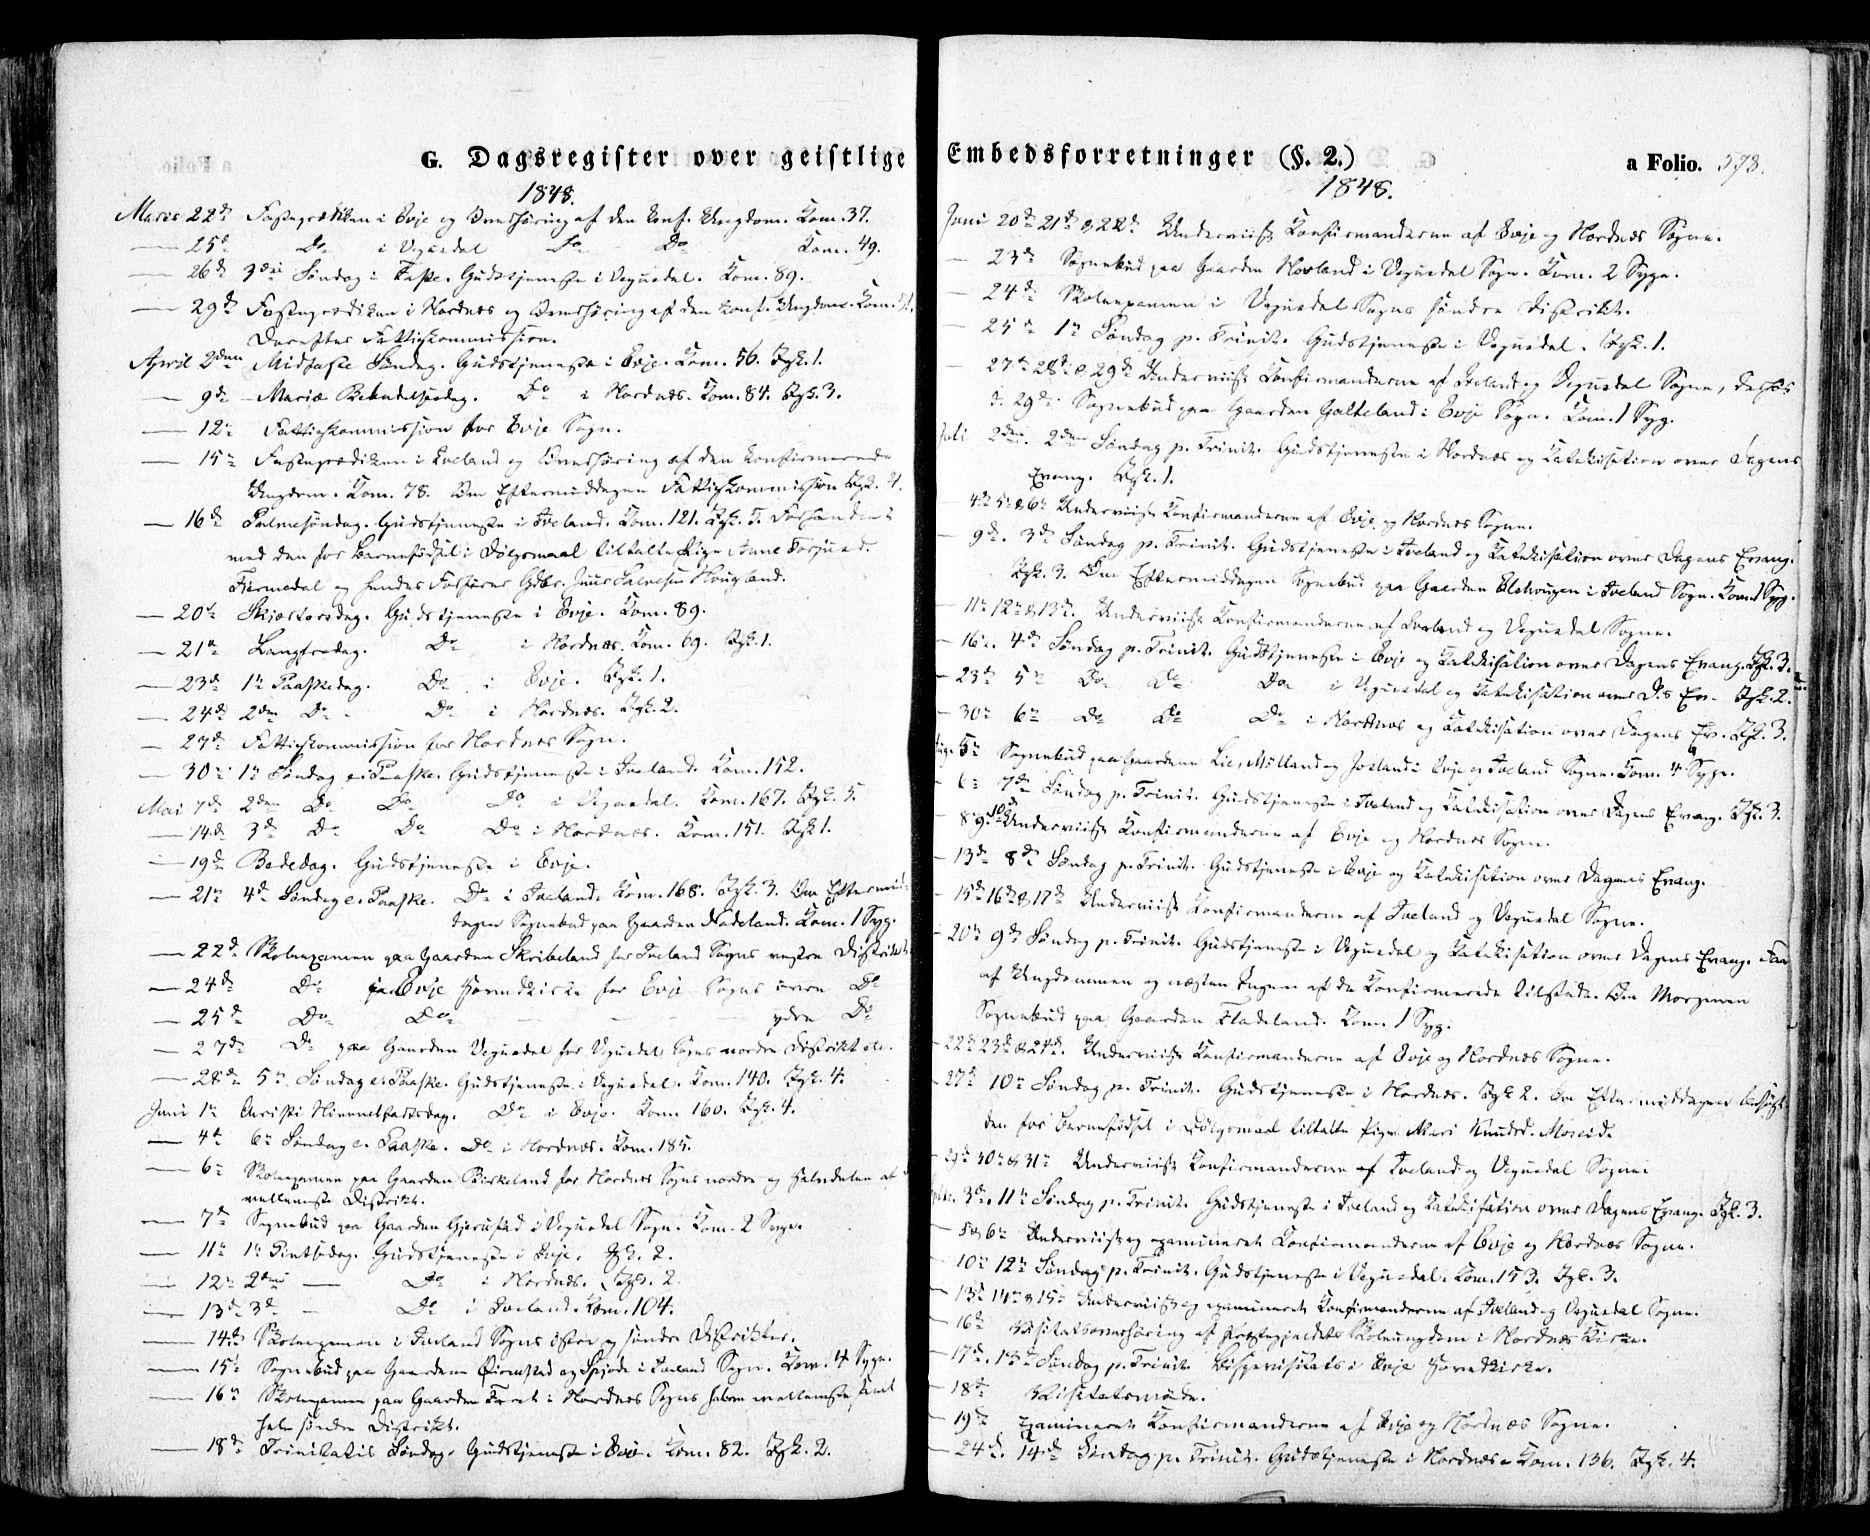 G. Dagsregister over geistlige
1848.
Marts 22de Fasteprædiken i Evje og Overhøring af den konf. Ungdom. Kom. 37.
— 25de Do i Vegusdal Do Do Kom. 49.
— 26de 3die Søndag i Faste. Gudstjeneste i Vegusdal. Kom. 89.
— 29de Fasteprædiken i Hordnæs og Overhøring af den konf. Ungdom. Kom.
Derefter Fattigkommission.
April 2den Midfaste Søndag. Gudstjeneste i Evje. Kom. 56. Dgk. 1.
— 9de Mariæ Bebudelsesdag. Do i Hordnæs. Kom. 84. Dgk. 3.
— 12te Fattigkommission for Evje Sogn.
— 15de Fasteprædiken i Iveland og Overhøring af den konfirmerede
Ungdom. Kom. 78. Om Eftermiddagen Fattigkommission Dgk. 4.
— 16de Palmesøndag. Gudstjeneste i Iveland. Kom. 121. Dgk. 5.
med den for Barnefødsel i Dølgsmaal tiltalte Pige Anne
og hendes
— 20de Skjærtorsdag. Gudstjeneste i Evje. Kom. 89.
— 21de Langfredag. Do i Hordnæs. Kom. 69. Dgk. 1.
— 23de 1ste Paaskedag. Do i Evje. Dgk. 1.
— 24de 2den Do - Do i Hordnæs. Dgk. 2.
— 27de Fattigkommission for Hordnæs Sogn.
— 30te 1ste Søndag e. Paaske. Gudstjeneste i Iveland. Kom. 152.
Mai 7de 2den Do Do Do i Vegusdal. Kom. 167. Dgk. 5.
— 14de 3die Do Do Do i Hordnæs. Kom. 151. Dgk. 1.
— 19de Bededag. Gudstjeneste i Evje.
— 21de 4de Søndag e. Paaske. Do i Iveland. Kom. 168. Dgk. 3. Om Eftermid-
dagen Sognebud paa Gaarden Kom. 1 Syg.
— 22de Skoleexamen paa Gaarden Skribeland for Iveland Sogns vestre Distrikt
— 24de Do paa Evje for Evje Sogns øvre Do
— 25de Do Do — — — ydre Do
— 27de Do paa Gaarden Vegusdal for Vegusdal Sogns nordre Distrikt
— 28de 5te Søndag e. Paaske. Gudstjeneste i Vegusdal. Kom. 140. Dgk. 4.
Juni 1ste Christi Himmelfartsdag. Do i Evje. Kom. 160. Dgk. 4.
— 4de 6te Søndag e. Paaske. Do i Hordnæs. Kom. 185.
— 6te Skoleexamen paa Gaarden Birkeland for Hordnæs Sogns nordre og Halvdelen af
mellemste Distrikt.
— 7de Sognebud paa Gaarden i Vegusdal Sogn. Kom. 2 Syge.
— 11te 1ste Pintsedag. Gudstjeneste i Evje. Dgk. 2.
— 12te 2den — Do i Hordnæs. Dgk. 2.
— 13de 3die — Do i Iveland. Kom. 104.
— 14de Skoleexamen i Iveland Sogns østre og søndre Distrikter.
— 15de Sognebud paa Gaardene og i Iveland Sogn. Kom. 4 Syge.
— 16de Skoleexamen paa Gaarden i Hordnæs Sogns halve mellemste samt
hele søndre Distrikt.
— 18de Trinitatis Søndag. Gudstjeneste i Evje. Kom. 82. Dgk. 2.
Embedsforretninger (§. 2.)
a Folio. 378.
1848.
Juni 20de 21de & 22de Underviist Konfirmanderne af Evje og Hordnæs Sogne.
— 23de Sognebud paa Gaarden Hovland i Vegusdal Sogn. Kom. 2 Syge.
— 24de Skoleexamen i Vegusdal Sogns søndre Distrikt.
— 25de 1ste Søndag p. Trinit. Gudstjeneste i Vegusdal. Dgk. 1.
— 27de 28de & 29de Underviist Konfirmanderne af Iveland og Vegusdal Sogne,
d. 29de Sognebud paa Gaarden Galteland i Evje Sogn. Kom. 1 Syg.
Juli 2den 2den Søndag p. Trinit. Gudstjeneste i Hordnæs og Katekisation over Dagens
Evang. Dgk. 1.
— 4de 5te & 6te Underviist Konfirmanderne af Evje og Hordnæs Sogne.
— 9de 3die Søndag p. Trinit. Gudstjeneste i Iveland og Katekisation over Dagens Evang.
Dgk. 3. Om Eftermiddagen Sognebud paa Gaarden i Iveland Sogn. Kom. 1 Syg.
— 11te 12te & 13de Underviist Konfirmanderne af Iveland og Vegusdal Sogne.
— 16de 4de Søndag p. Trinit. Gudstjeneste i Evje og Katekisation over Dagens Evang. Dgk. 3.
— 23de 5te Do Do Do i Vegusdal og Katekisation over D.s Ev. Dgk. 2.
— 30te 6te Do Do Do i Hordnæs og Katekisation over Dagens Ev. Dgk. 3.
Aug. 5te Sognebud paa Gaardene Lie, Mølland og i Evje og Iveland Sogne. Kom. 4 Syge.
— 6te 7de Søndag p. Trinit. Gudstjeneste i Iveland og Katekisation over Dagens Evang. Dgk. 3.
— 8 9 10de Underviist Konfirmanderne af Evje og Hordnæs Sogne.
— 13de 8de Søndag p. Trinit. Gudstjeneste i Evje og Katekisation over Dagens Evang.
— 15de 16de & 17de Underviist Konfirmanderne af Iveland og Vegusdal Sogne.
— 20de 9de Søndag p. Trinit. Gudstjeneste i Vegusdal og Katekisation over Dagens Evang. Faa
af Ungdommen og næsten Ingen af de Konfirmerede tilstede. Om Morgenen
Sognebud paa Gaarden Fladeland. Kom. 1 Syg.
— 22de 23de & 24de Underviist Konfirmanderne af Evje og Hordnæs Sogne.
— 27de 10de Søndag p. Trinit. Gudstjeneste i Hordnæs. Dgk. 2. Om Eftermiddagen besøgt
den for Barnefødsel i Dølgsmaal tiltalte Pige Mari Knudsd.
— 29de 30te & 31te Underviist Konfirmanderne af Iveland og Vegusdal Sogne.
3die 11te Søndag p. Trinit. Gudstjeneste i Iveland og Katekisation over Dagens Evang. Dgk. 3.
— 5 & 6te Underviist og examineret Konfirmanderne af Evje og Hordnæs Sogne.
— 10de 12te Søndag p. Trinit. Gudstjeneste i Vegusdal. Kom. 153. Dgk. 3.
— 13de 14de & 15de Underviist og examineret Konfirmanderne af Iveland og Vegusdal Sogne.
— 16de Visitatsoverhøring af Præstegjældets Skoleungdom i Hordnæs Kirke.
— 17de 13de Søndag p. Trinit. Bispevisitats i Evje Hovedkirke.
— 18de Visitatsmøde.
— 19de Examineret Konfirmanderne af Evje og Hordnæs Sogne.
— 24de 14de Søndag p. Trinit. Gudstjeneste i Hordnæs Kom. 136. Dgk. 4.